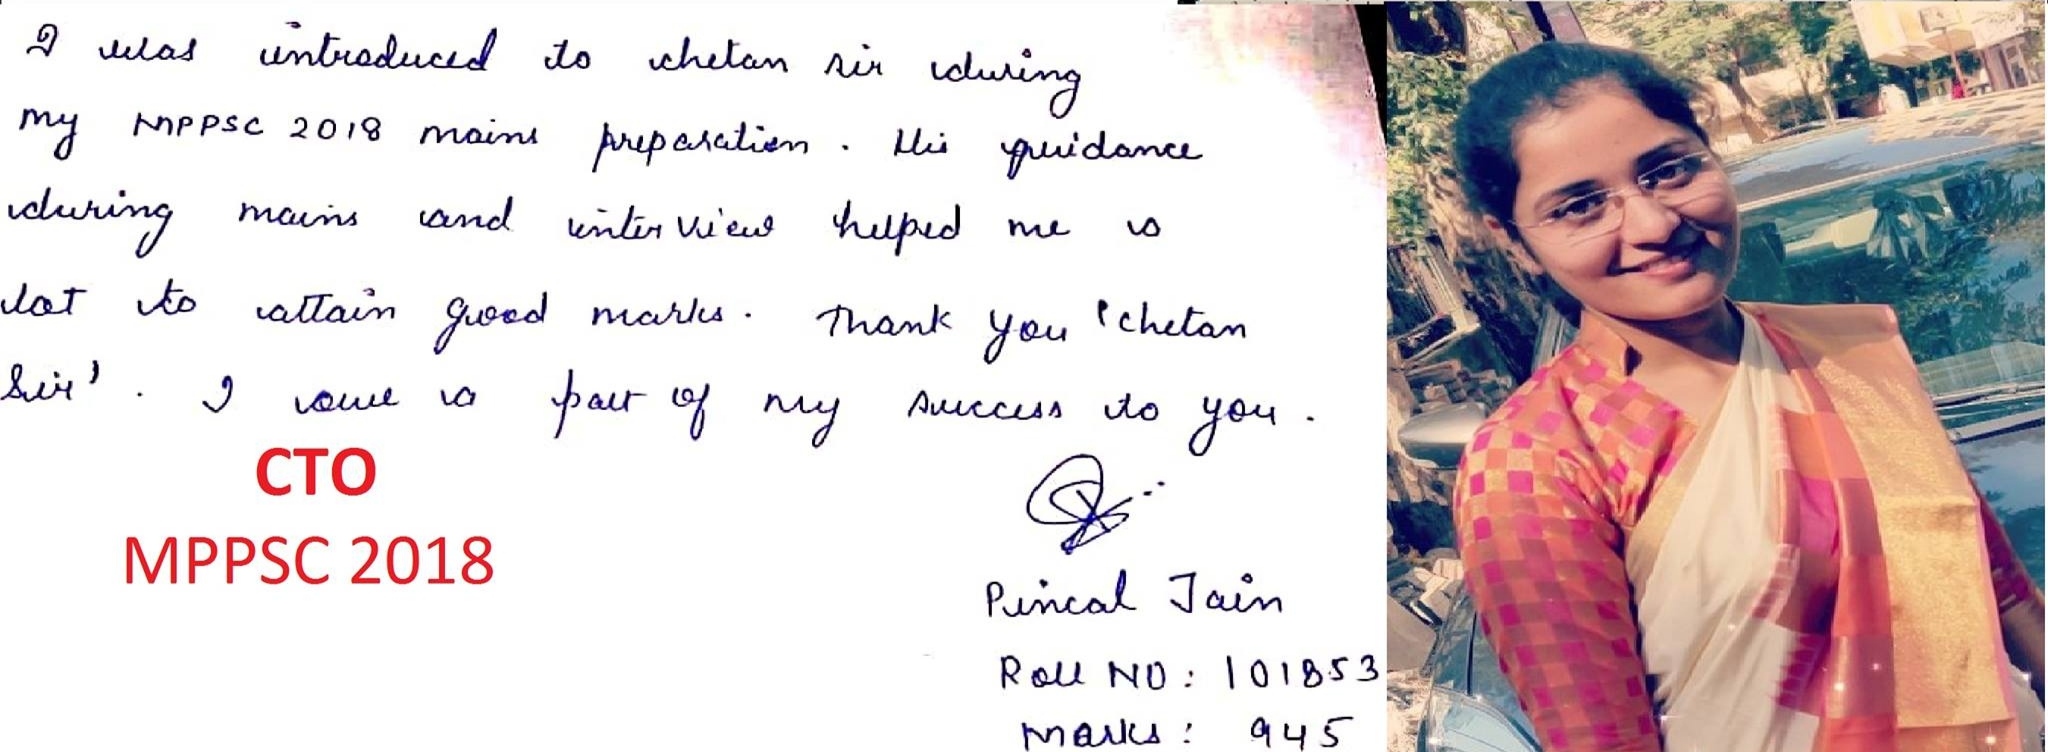 I was introduced to chetan sir during
my MPPSC 2018 mains preparation. His guidance
during mains and interview helped me a
lot to attain good marks. Thank you 'chetan
Sir'. I owe a part of my success to you.
CTO
MPPSC 2018
Pincal Jain
Roll NO: 101853
Marks: 945